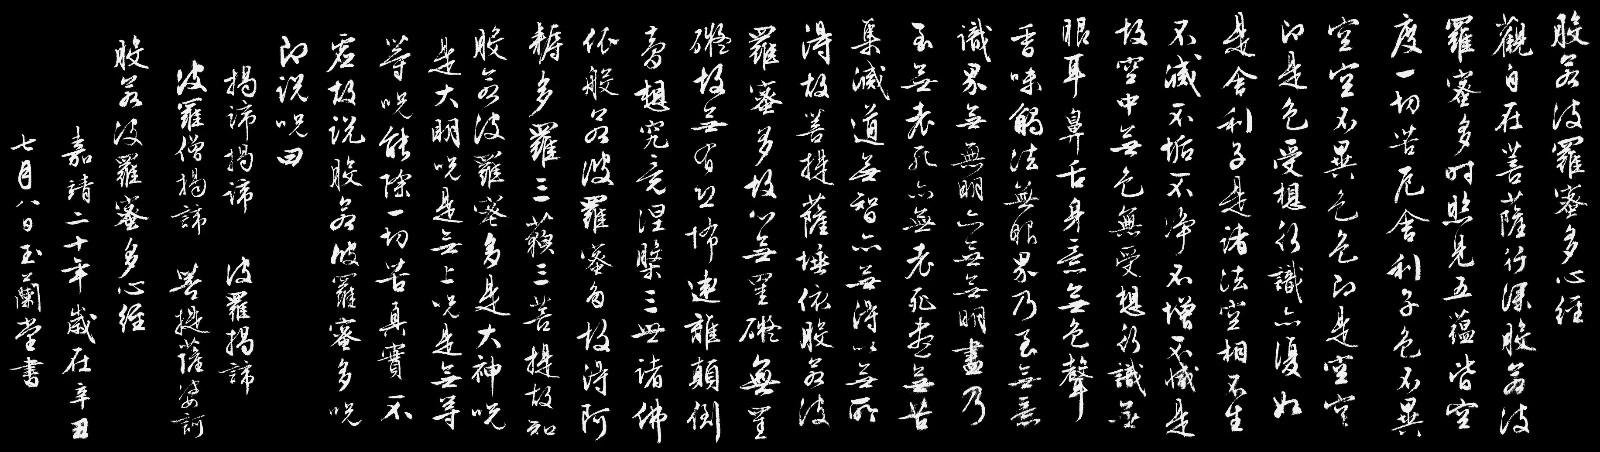 般若波羅蜜多心經
觀自在菩薩行深般若波
羅蜜多时照見五蕴皆空
度一切苦厄舍利子色不異
空空不異色色即是空空
即是色受想行識亦復如
是舍利子是诸法空相不生
不滅不垢不净不增不減是
故空中無色無受想行識無
眼耳鼻舌身意無色聲
香味觸法無眼界乃至無意
識界無無明亦無無明盡乃
至無老死亦無老死盡無苦
集滅道無智亦無得以無所
得故菩提薩埵依般若波
羅蜜多故心無罣礙無罣
礙故無有恐怖遠離顛倒
夢想究竟涅槃三世诸佛
依般若波羅蜜多故得阿
耨多羅三藐三菩提故知
般若波羅蜜多是大神呪
是大明呪是無上呪是無等
等呪能除一切苦真實不
虛故说般若波羅蜜多呪
即说呪曰
揭諦揭諦 波羅揭諦
波羅僧揭諦 菩提薩婆訶
般若波羅蜜多心經
嘉靖二十年歲在辛丑
七月八日玉蘭堂書